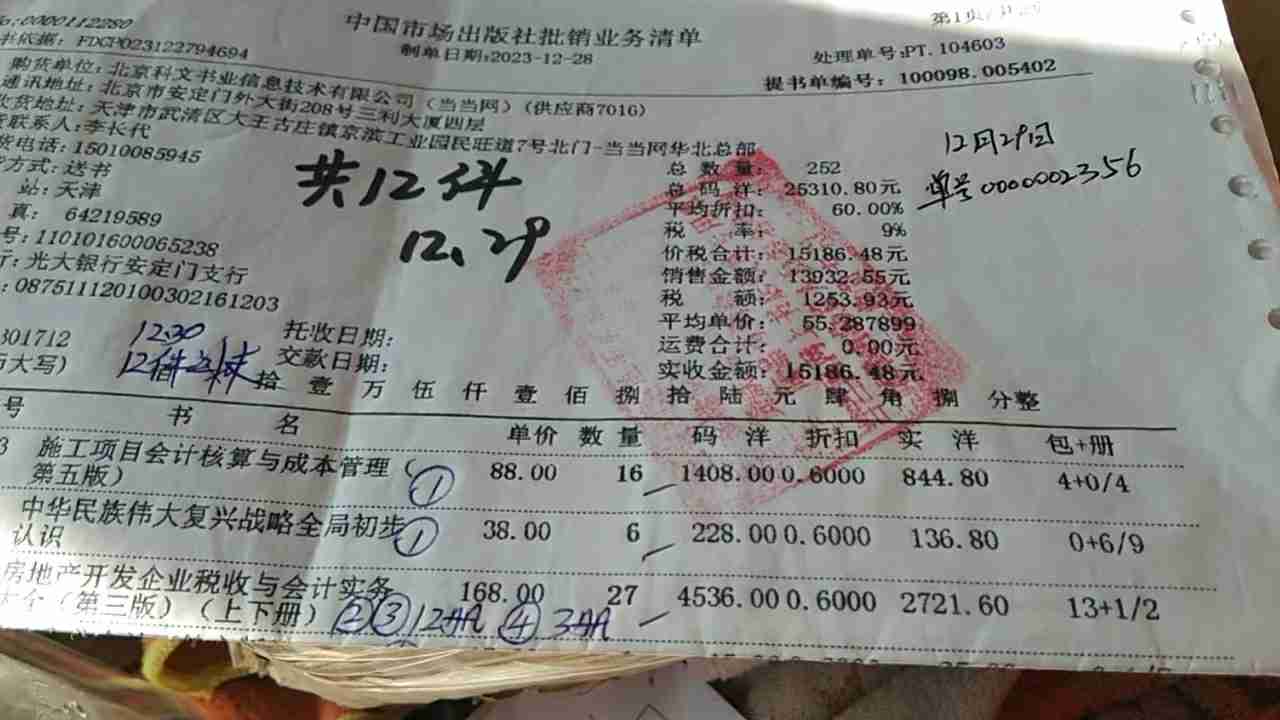 No:0000112280
中国市场出版社批销业务清单
第1页/共2页
书依据: FDCP023122794694
制单日期:2023-12-28
处理单号:PT.104603
购货单位:北京科文书业信息技术有限公司(当当网)(供应商7016)
提书单编号: 100098.005402
通讯地址:北京市安定门外大街208号三利大厦四层
收货地址:天津市武清区大王古庄镇京滨工业园民旺道7号北门-当当网华北总部
联系人:李长代
货电话:15010085945
方式:送书
站:天津
真: 64219589
号:110101600065238
行:光大银行安定门支行
:08751112010030216 1203
共12件
12.29
12月29日
单号0000002356
总数量: 252
总码洋: 25310.80元
平均折扣: 60.00%
税率: 9%
价税合计: 15186.48元
销售金额: 13932.55元
税额: 1253.93元
平均单价: 55.287899
运费合计: 0.00元
实收金额: 15186.48元
301712
12.30
托收日期:
大写)
12件
交款日期:
拾壹万伍仟壹佰捌拾陆元肆角捌分整
号 书名 单价 数量 码洋 折扣 实洋 包+册
3 施工项目会计核算与成本管理(
第五版)
① 88.00 16 1408.00 0.6000 844.80 4+0/4
中华民族伟大复兴战略全局初步
认识
① 38.00 6 228.00 0.6000 136.80 0+6/9
房地产开发企业税收与会计实务
大全(第三版)(上下册)
168.00 27 4536.00 0.6000 2721.60 13+1/2
②③12册 ④3册